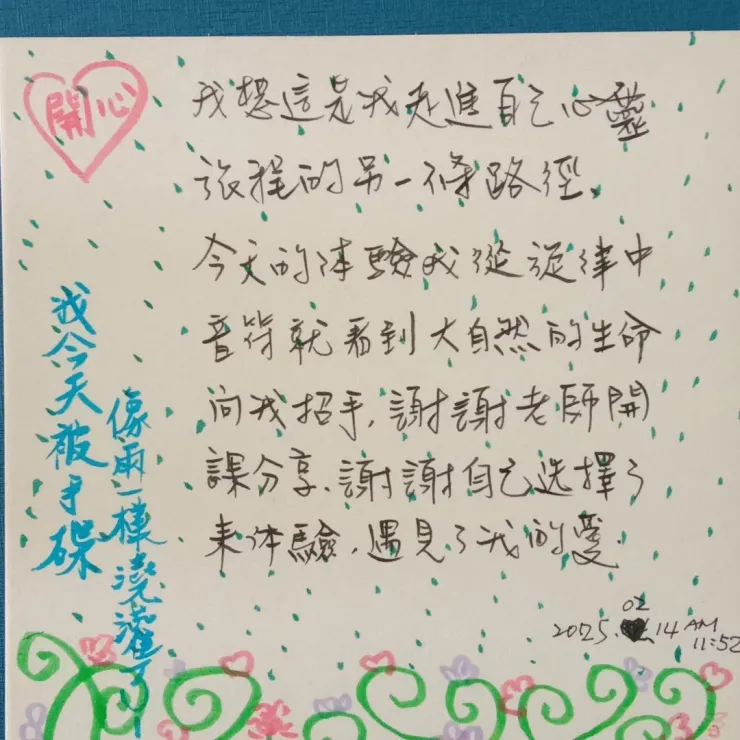 開心
我想這是我走進自己心靈
旅程的另一條路徑、
今天的体驗我從旋律中
音符就看到大自然的生命
向我招手,謝謝老師開
課分享、謝謝自己选擇了
来体驗,遇見了我的愛.
02
2025. 14 AM
11:52
我今天被手碟
像雨一樣澆灌了